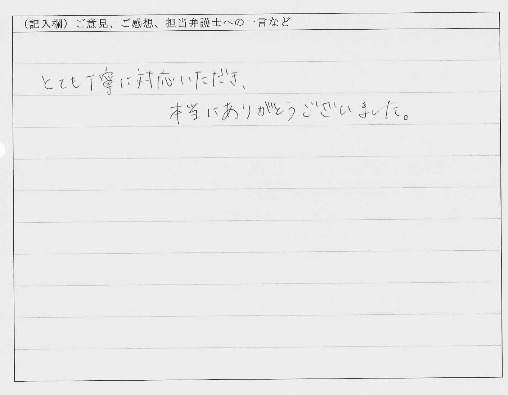 (記入欄)ご意見、ご感想、担当弁護士への一言など
とても丁寧に対応いただき、
本当にありがとうございました。